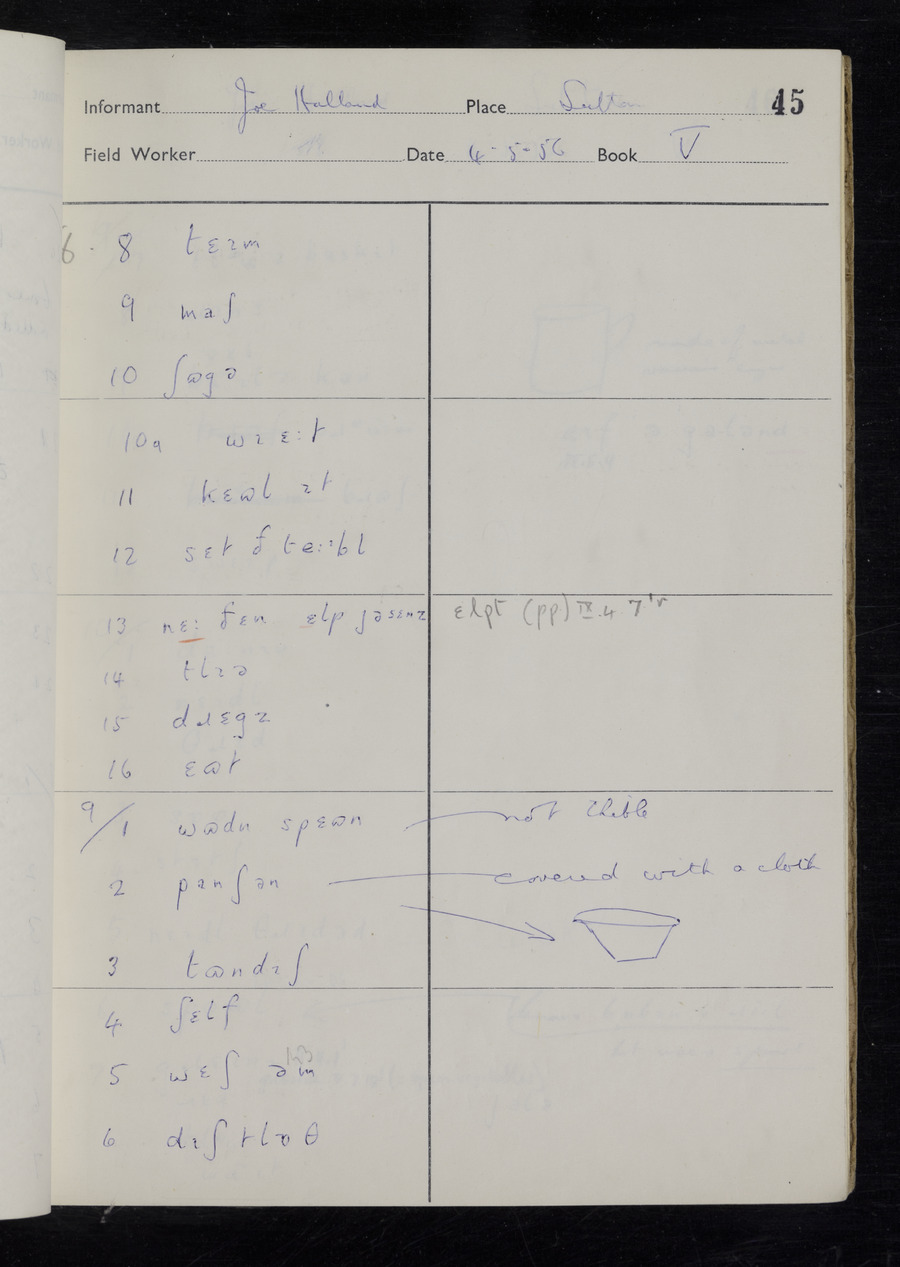 Informant Joe Halland Place Sutton 45
Field Worker Date 4-5-56 Book V
6. 8 tɛɪm
9 maʃ
10 ʃɷgə
10a wɪɛ:t
11 kɛɷl ɪt
12 sɛt ðteːbl
13 nɛ: ðɛn ɛlp jəsɛnz ɛlpt (pp) IX.4 7'r
14 tlɪə
15 dɹɛgz
16 ɛɷt
9/1 wɷdn spɛɷn not thible
2 panʃən covered with a cloth
3 tɷndɪʃ
4 ʃɛlf
5 wɛʃ əm
6 dɪʃtlɒθ